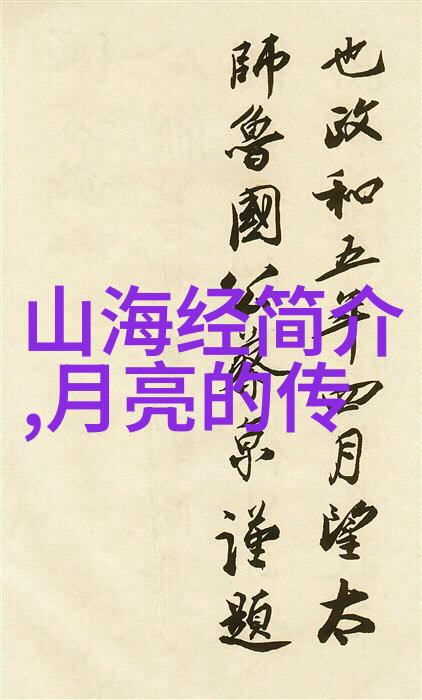 也政和五年四月望太
師魯國公蔡京謹題
山海经简介
,月亮的传